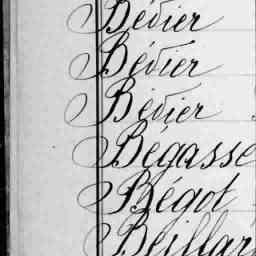 Bédier
Bédier
Bédier
Bégasse
Bégot
Beillar